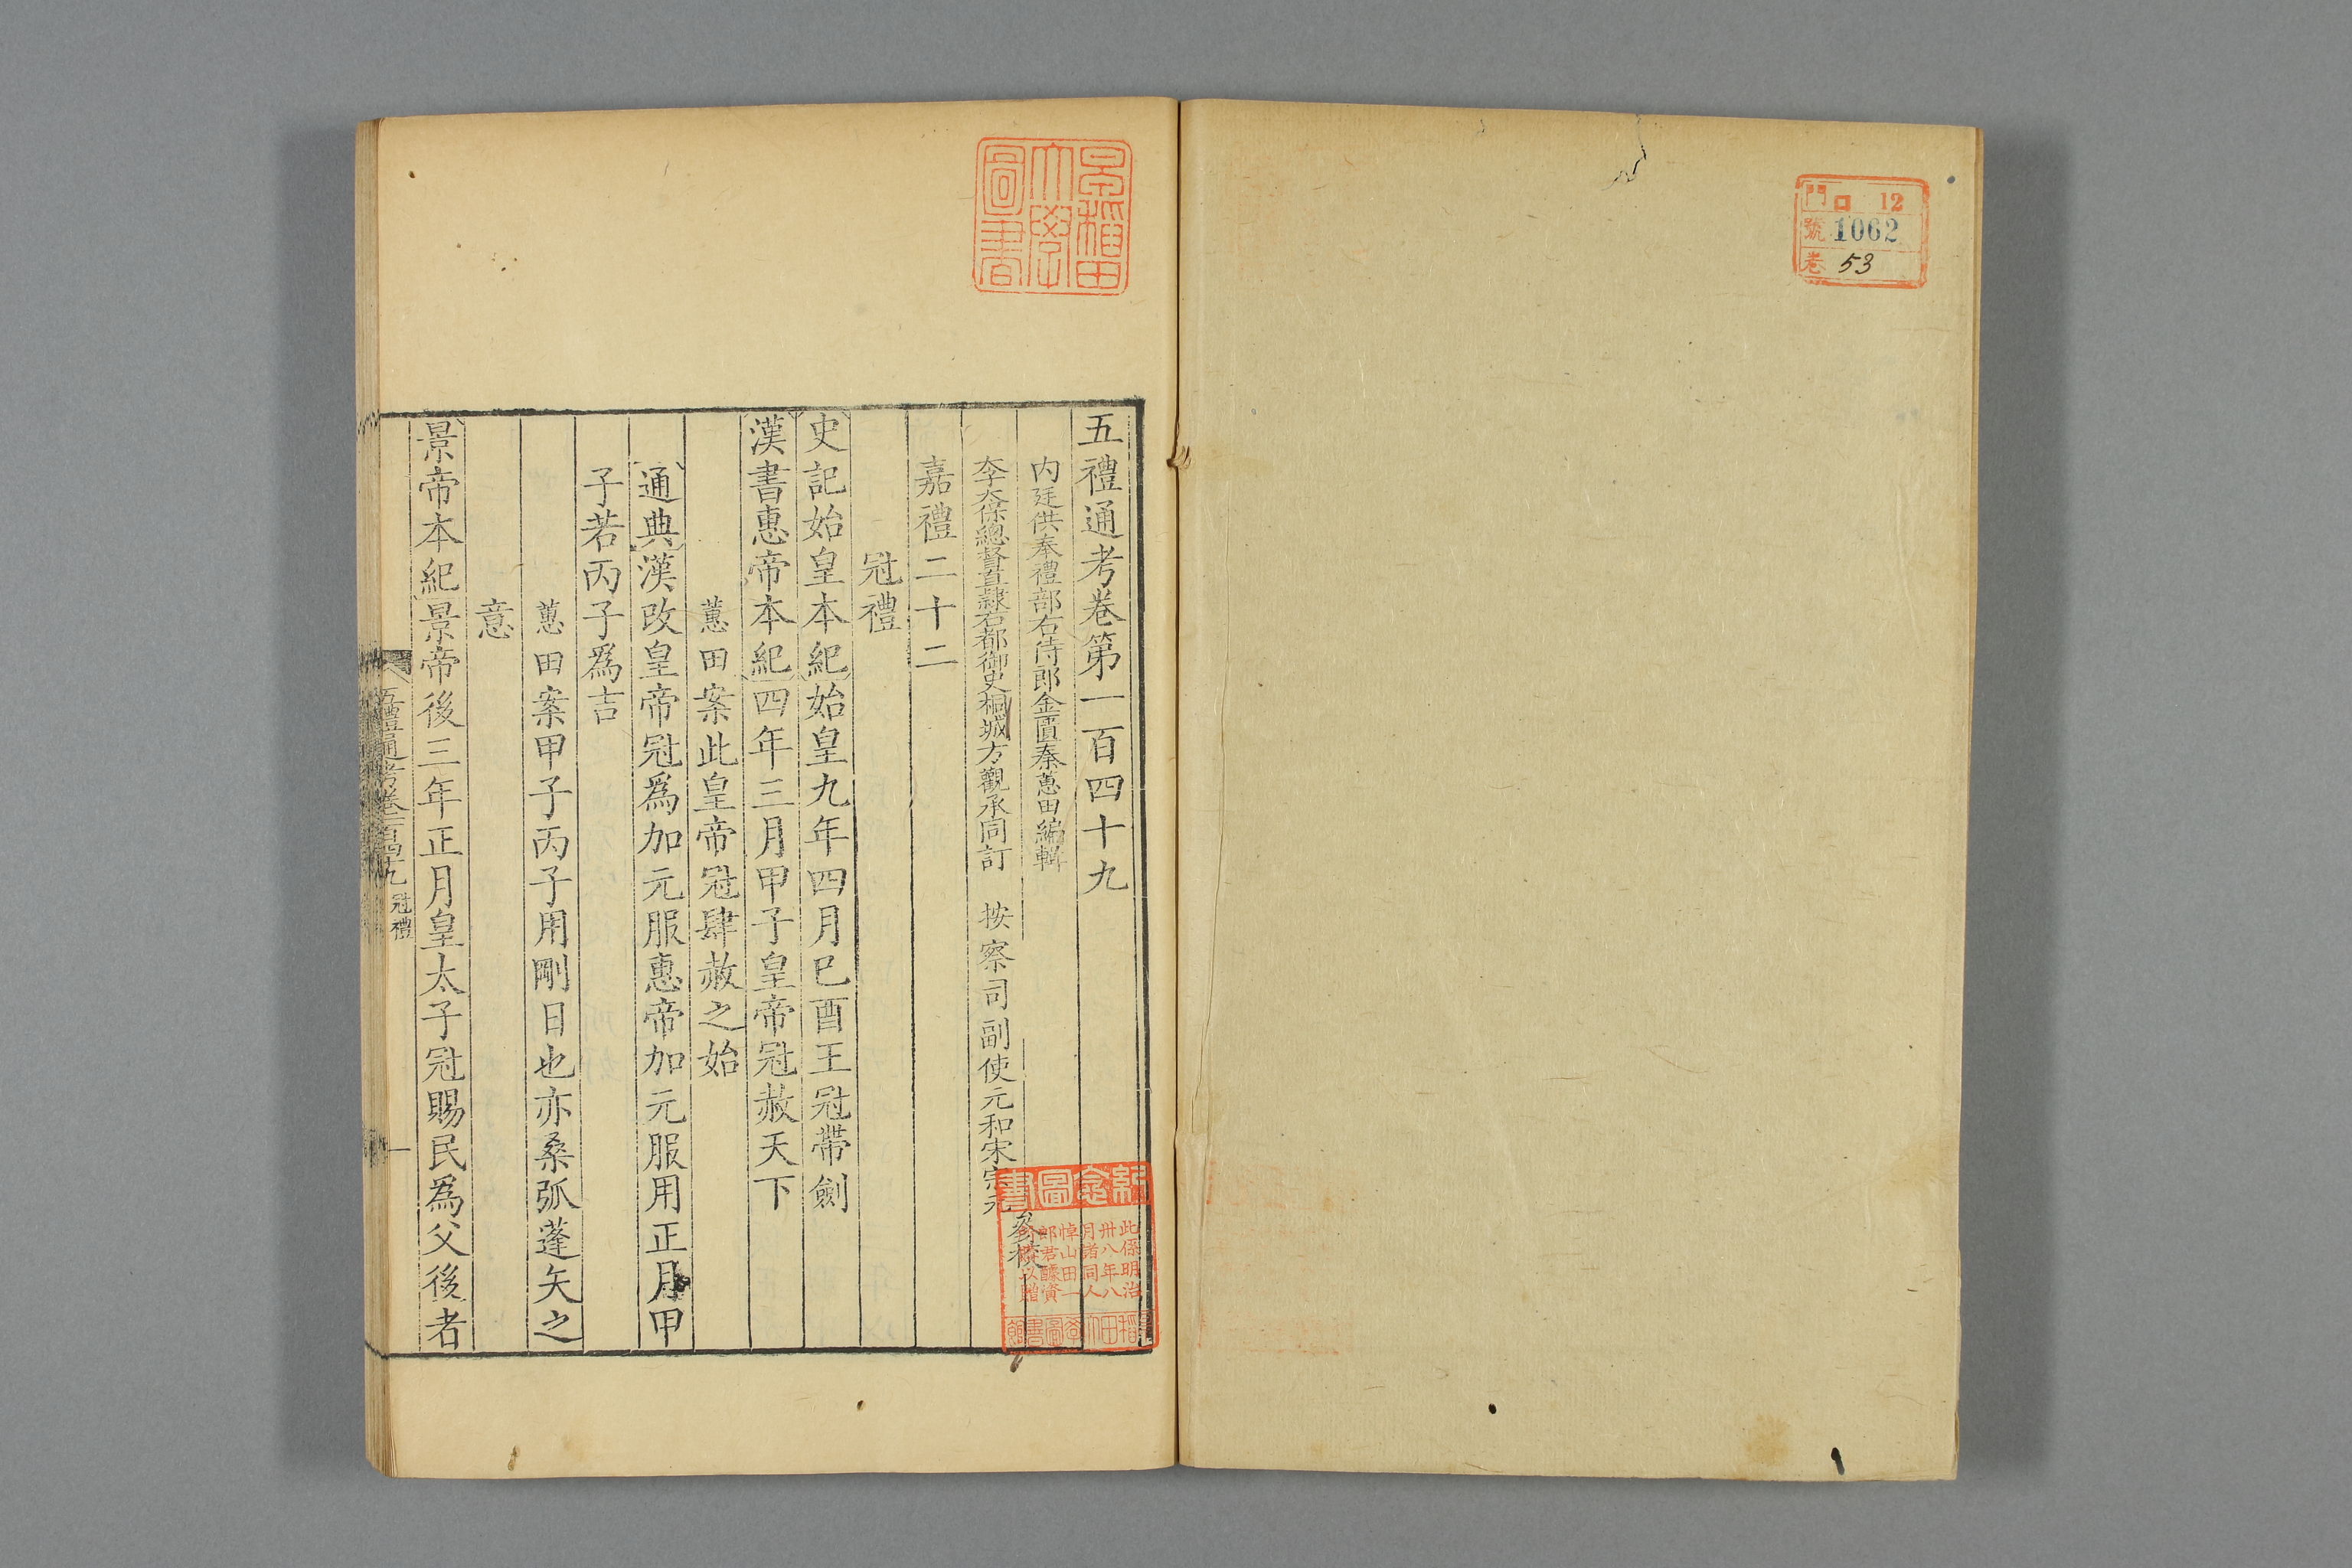 門 ロ 12
號 1062
卷 53
早稻田大學圖書
五禮通考卷第一百四十九
内廷供奉禮部右侍郎金匱秦蕙田編輯
李太保總督直隸右都御史桐城方觀承同訂 按察司副使元和宋宗元
參校
嘉禮二十二
冠禮
史記始皇本紀始皇九年四月已酉王冠帶劍
漢書惠帝本紀四年三月甲子皇帝冠赦天下
蕙田案此皇帝冠肆赦之始
通典漢改皇帝冠爲加元服惠帝加元服用正月甲
子若丙子爲吉
蕙田案甲子丙子用剛日也亦桑弧蓬矢之
意
景帝本紀景帝後三年正月皇太子冠賜民爲父後者
五禮通考卷一百四十九 冠禮 一
紀念圖書
此係明治
卅八年八
月諸同人
悼山田一
郎君醵資
以贈